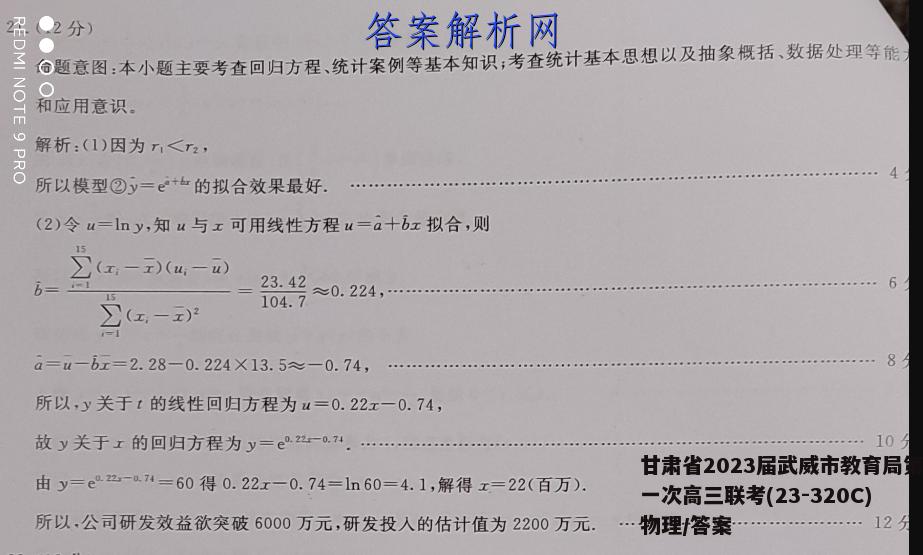 答案解析网
(12分)
命题意图:本小题主要考查回归方程、统计案例等基本知识;考查统计基本思想以及抽象概括、数据处理等能
和应用意识。
解析:(1)因为 r₁<r₂,
所以模型②ŷ=e^{â+b̂x}的拟合效果最好. …… 4
(2)令 u=ln y,知 u 与 x 可用线性方程 u=â+b̂x 拟合,则
b̂=\frac{\sum_{i=1}^{15}(x_i-\bar{x})(u_i-\bar{u})}{\sum_{i=1}^{15}(x_i-\bar{x})^2}=\frac{23.42}{104.7}≈0.224,…… 6
â=ū-b̂x̄=2.28-0.224×13.5≈-0.74, …… 8
所以,y 关于 t 的线性回归方程为 u=0.22x-0.74,
故 y 关于 x 的回归方程为 y=e^{0.22x-0.74}. …… 10分
由 y=e^{0.22x-0.74}=60 得 0.22x-0.74=ln 60=4.1,解得 x=22(百万).
所以,公司研发效益欲突破 6000 万元,研发投入的估计值为 2200 万元. …… 12分
甘肃省2023届武威市教育局第
一次高三联考(23-320C)
物理/答案
REDMI NOTE 9 PRO